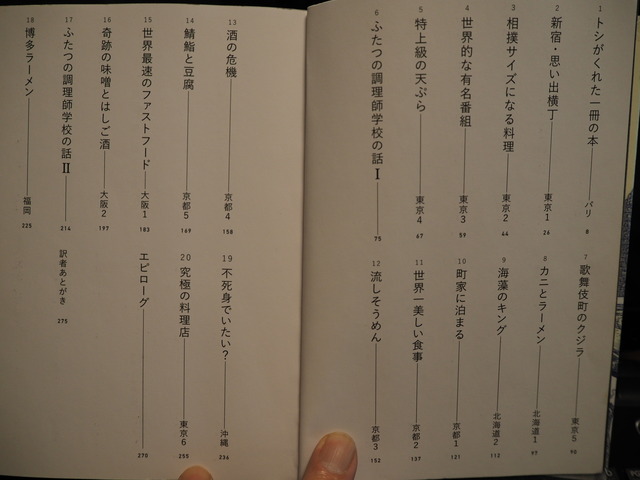 1 トシがくれた一冊の本 パリ 8
2 新宿・思い出横丁 東京1 26
3 相撲サイズになる料理 東京2 44
4 世界的な有名番組 東京3 59
5 特上級の天ぷら 東京4 67
6 ふたつの調理師学校の話 I 75
7 歌舞伎町のクジラ 東京5 90
8 カニとラーメン 北海道1 97
9 海藻のキング 北海道2 112
10 町家に泊まる 京都1 121
11 世界一美しい食事 京都2 137
12 流しそうめん 京都3 152
13 酒の危機 京都4 158
14 鯖鮨と豆腐 京都5 169
15 世界最速のファストフード 大阪1 183
16 奇跡の味噌とはしご酒 大阪2 197
17 ふたつの調理師学校の話 II 214
18 博多ラーメン 福岡 225
19 不死身でいたい? 沖縄 236
20 究極の料理店 東京6 255
エピローグ 270
訳者あとがき 275